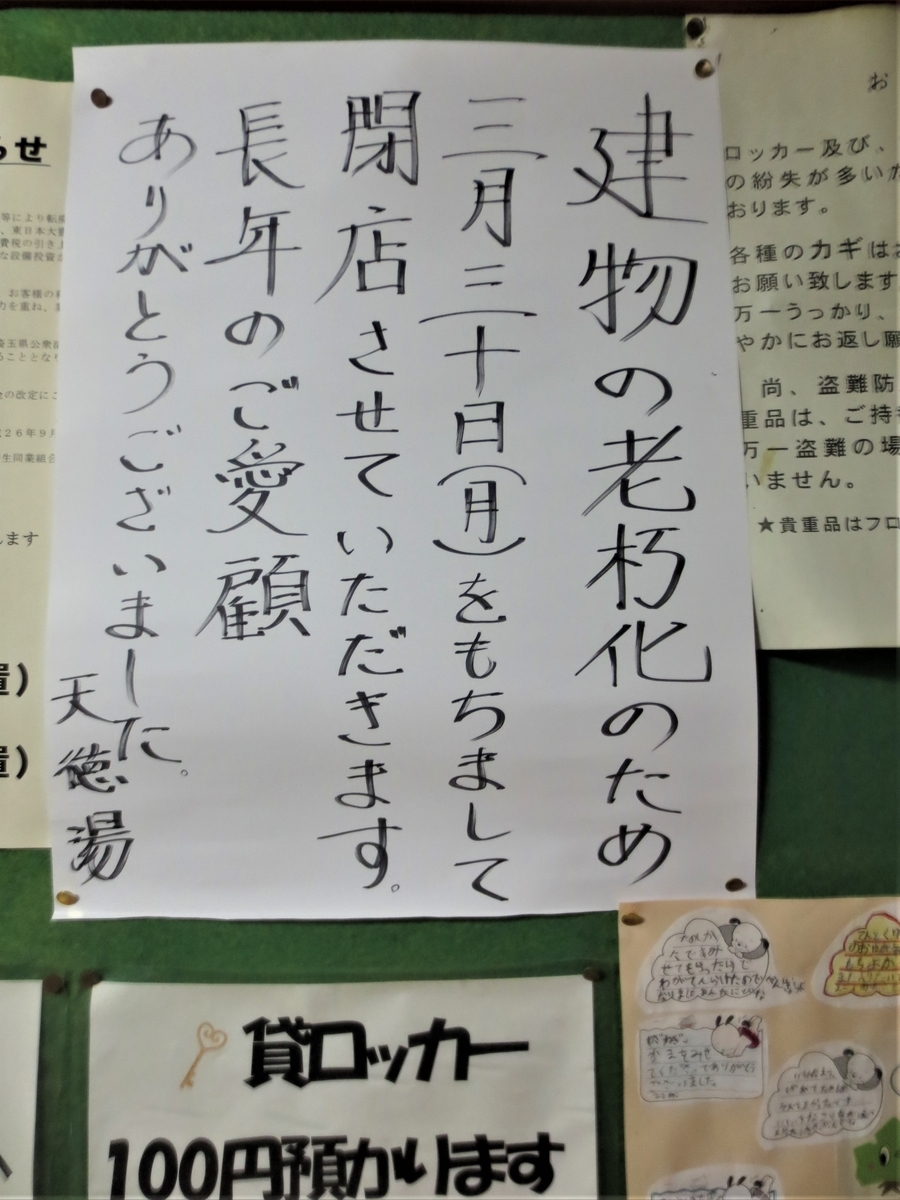 建物の老朽化のため
三月三十日(月)をもちまして
閉店させていただきます。
長年のご愛顧
ありがとうございました。
天徳湯
お
ロッカー及び、
の紛失が多いた
おります。
各種のカギはお
お願い致します
万一うっかり、
やかにお返し願
尚、盗難防
重品は、ご持
万一盗難の場
いません。
★貴重品はフロ
らせ
等により転
、東日本大
費税の引き上
な設備投資
お客様の
力を重ね、
埼玉県公衆
ることとな
金の改定にこ
26年9月
生同業組合
します
置)
置)
貸ロッカー
100円預かります